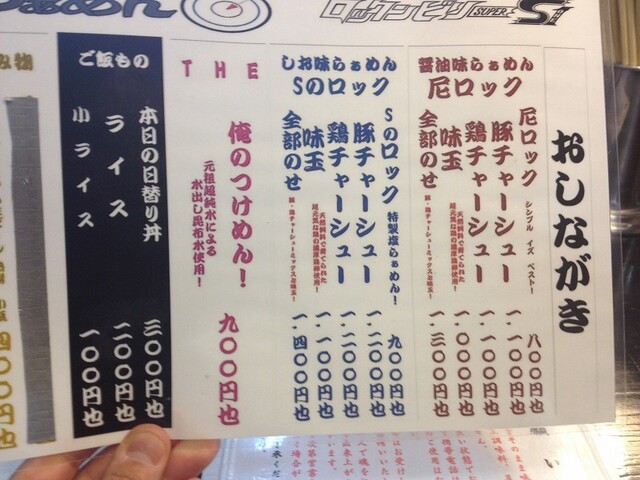 らぁめん
ロックンビリー SUPER S1
おしながき
醤油味らぁめん
尼ロック
尼ロック シンプル イズ ベスト! 八〇〇円也
豚チャーシュー 一、一〇〇円也
鶏チャーシュー 一、一〇〇円也
味玉 天然飼料で育てられた 一、〇〇〇円也
全部のせ 豚・鶏チャーシューミックスと味玉! 一、三〇〇円也
しお味らぁめん
Sのロック
Sのロック 特製塩らぁめん! 九〇〇円也
豚チャーシュー 一、二〇〇円也
鶏チャーシュー 一、二〇〇円也
味玉 天然飼料で育てられた 一、一〇〇円也
全部のせ 豚・鶏チャーシューミックスと味玉! 一、四〇〇円也
THE
俺のつけめん! 九〇〇円也
元祖超純水による
水出し昆布水使用!
ご飯もの
本日の日替り丼 三〇〇円也
ライス 二〇〇円也
小ライス 一〇〇円也
み物
四〇〇円也